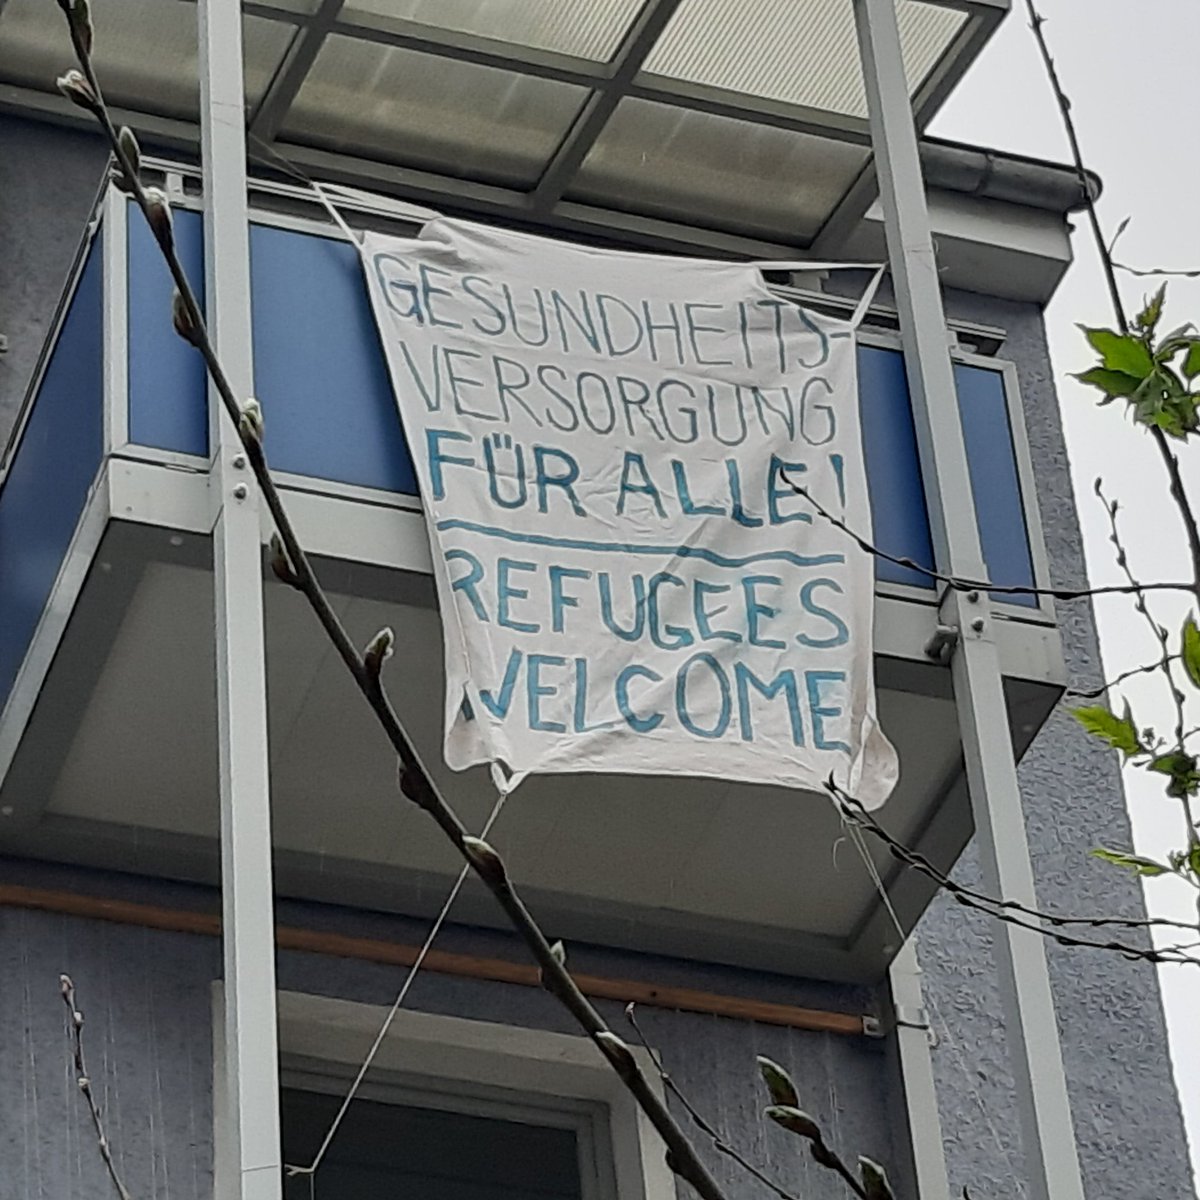 GESUNDHEITS-
VERSORGUNG
FÜR ALLE!
REFUGEES
WELCOME